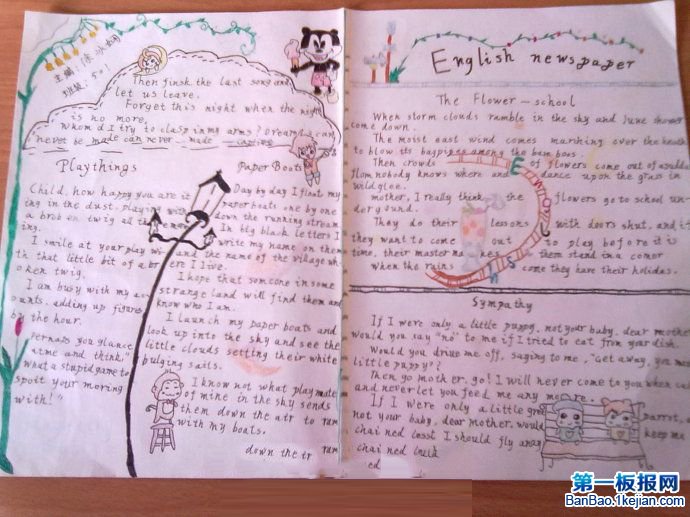 主编:徐冰
班级:501
Then finsk the last song and
let us leave.
Forget this night when the night
is no more,
Whom d I try to clasp in my arms? Dreams can
never be made can never made
Playthings
Child, how happy you are it
ing in the dust, playing with
a broken twig all the
ing.
I smile at your play wi
th that little bit of a br
oken twig.
I am busy with my acc
ounts, adding up figures
by the hour.
Perhaps you glance
at me and think,
"what a stupid game to
spoit your mering
with!"
Paper Boats
Day by day I float my
paper boats one by one
down the running stream
In big black letters I
write my name on them
and the name of the village
where I live.
I hope that someone in some
strange land will find them and
know who I am.
I launch my paper boats and
look up into the sky and see the
little clouds setting their white
bulging sails.
I know not what playmate
of mine in the sky sends
them down the air to ram
with my boats.
down the tr ram
English newspaper
The Flower-school
When storm clouds ramble in the sky and June shower
come down.
The moist east wind comes marhing over the heath
to blow its bagpipes among the bam boos.
Then crowds of flowers come out of a sudde
flom nobody knows where and dance upon the grass in
wild glee.
mother, I really think the flowers go to school un-
der gound.
They do their lessons with doors shut, and if
they want to come out to play before it is
time, their master makes them stand in a corner
when the rains come they have their holidas.
Sympathy
If I were only a little puppy, not your baby, dear mother
would you say "no" to me if I tried to eat from your dish.
Would you drive me off, saying to me, "Get away, you
little puppy"?
Then go mother, go! I will never come to you when
and never let you feed me any more.
If I were only a little gree parrot,
not your baby, dear mother, would keep me
chained lest I should fly away
chained
ed
第一板报网
BanBao.1kejian.com